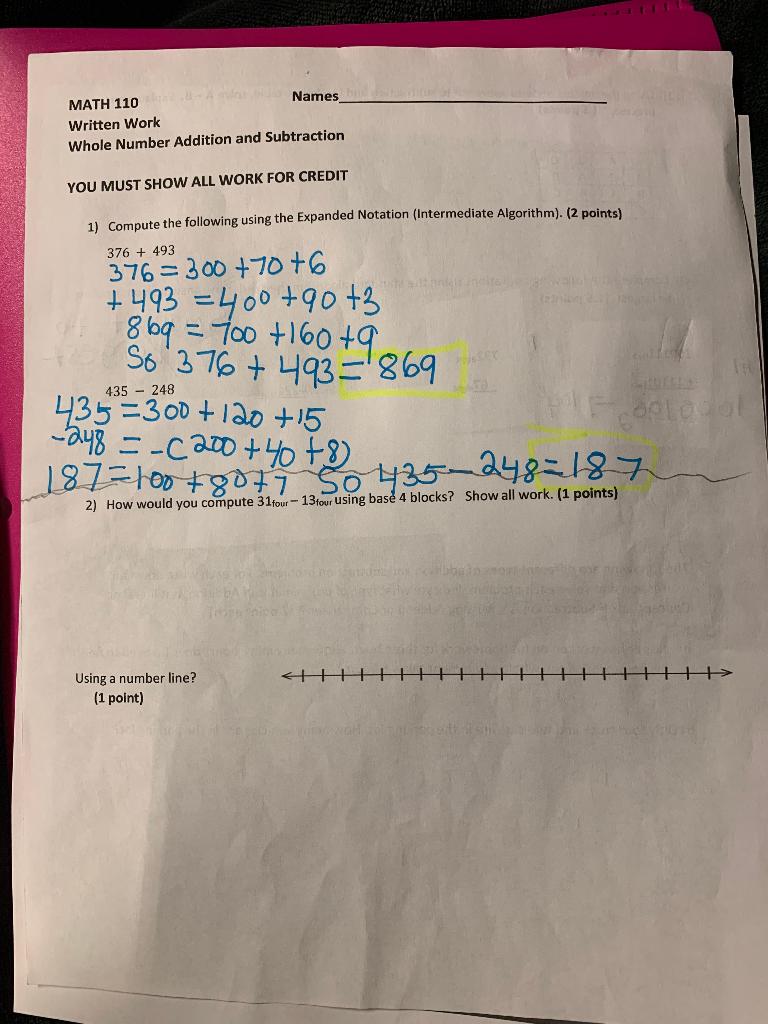 MATH 110 Names
Written Work
Whole Number Addition and Subtraction
YOU MUST SHOW ALL WORK FOR CREDIT
1) Compute the following using the Expanded Notation (Intermediate Algorithm). (2 points)
376 + 493
376 = 300 + 70 + 6
+ 493 = 400 + 90 + 3
869 = 700 + 160 + 9
So 376 + 493 = 869
435 − 248
435 = 300 + 120 + 15
-248 = -(200 + 40 + 8)
187 = 100 + 80 + 7 So 435 - 248 = 187
2) How would you compute 31four – 13four using base 4 blocks? Show all work. (1 points)
Using a number line?
(1 point)